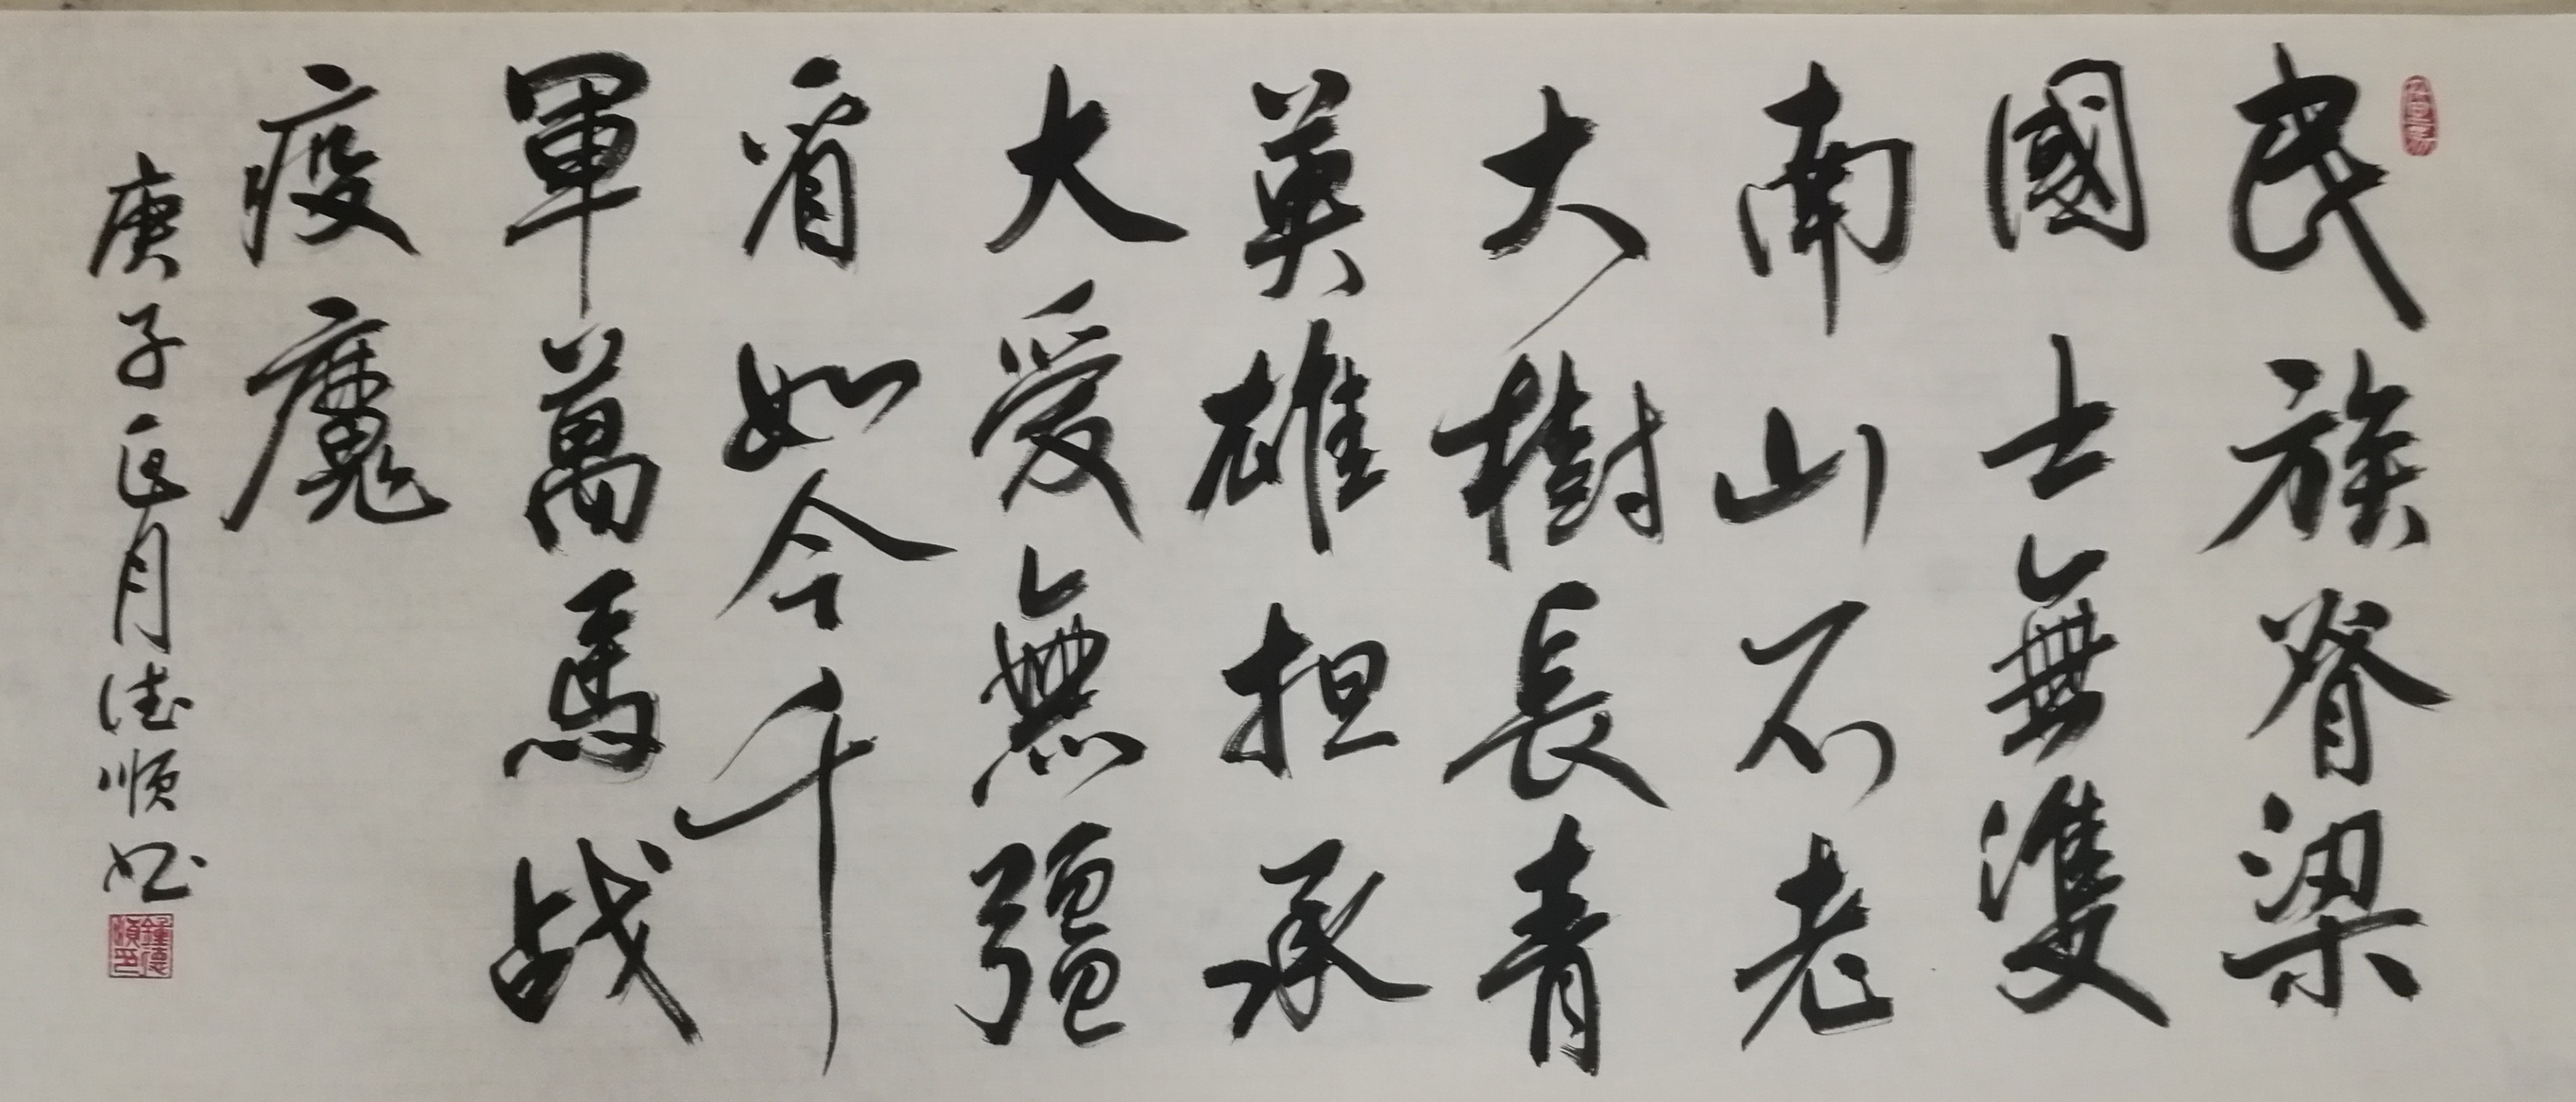 民族脊梁
國士無雙
南山不老
大樹長青
英雄担承
大爱無疆
看如今千
軍萬馬战
疫魔
庚子正月德順书
鍾德順印